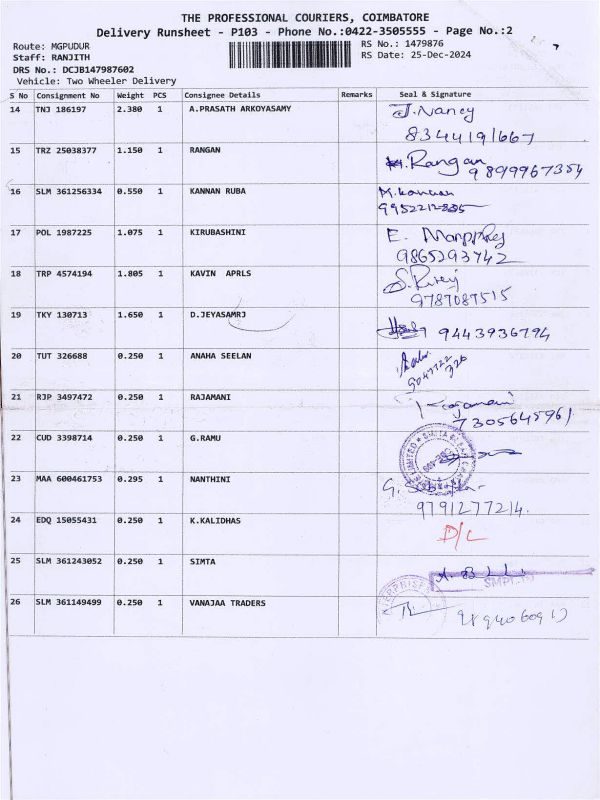 THE PROFESSIONAL COURIERS, COIMBATORE
Delivery Runsheet - P103 - Phone No.:0422-3505555 - Page No.:2
Route: MGPUDUR
RS No.: 1479876
Staff: RANJITH
RS Date: 25-Dec-2024
DRS No.: DCJB147987602
Vehicle: Two Wheeler Delivery
S No Consignment No Weight PCS Consignee Details Remarks Seal & Signature
14 TNJ 186197 2.380 1 A.PRASATH ARKOYASAMY J. Nancy
8344191667
15 TRZ 25038377 1.150 1 RANGAN Rangan
9899967354
16 SLM 361256334 0.550 1 KANNAN RUBA M. Kannan
17 POL 1987225 1.075 1 KIRUBASHINI E.
9865293742
18 TRP 4574194 1.805 1 KAVIN APRLS
9787087515
19 TKY 130713 1.650 1 D.JEYASAMRJ 9443936794
20 TUT 326688 0.250 1 ANAHA SEELAN
21 RJP 3497472 0.250 1 RAJAMANI Rajamani
7305645961
22 CUD 3398714 0.250 1 G.RAMU
23 MAA 600461753 0.295 1 NANTHINI G.
9791277214
24 EDQ 15055431 0.250 1 K.KALIDHAS D/L
25 SLM 361243052 0.250 1 SIMTA
26 SLM 361149499 0.250 1 VANAJAA TRADERS